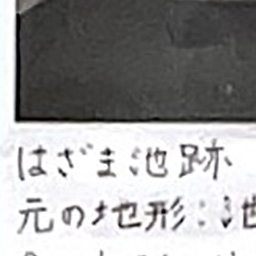 はざま池跡
元の地形:池